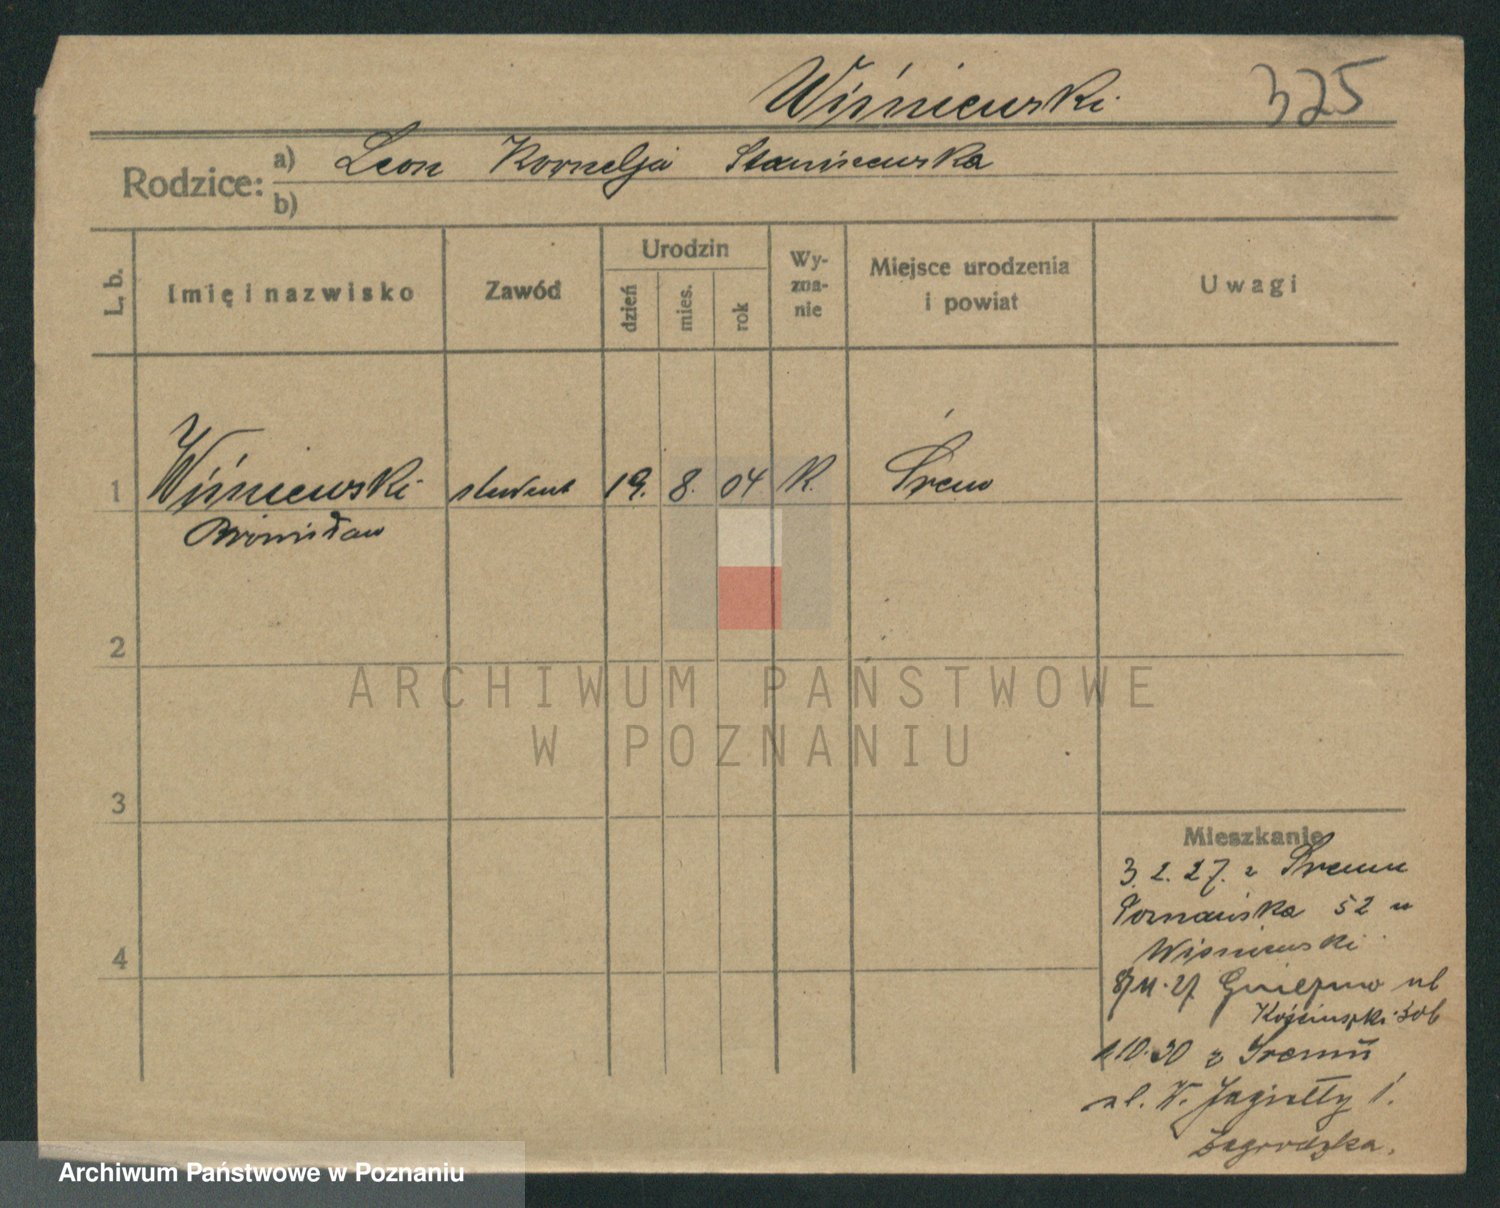 Wiśniewski 325
Rodzice: a) Leon Kornelja Staniszewska
b)
L. b. Imię i nazwisko Zawód Urodzin dzień mies. rok Wy-zna-nie Miejsce urodzenia i powiat Uwagi
1 Wiśniewski student 19. 8. 04 K. Śrem
Bronisław
2
ARCHIWUM PAŃSTWOWE
W POZNANIU
3
Mieszkanie
3. 2. 27. z Śremu
Poznańska 52 u
Wiśniewski
4
8/11.27 Gniezno ul
Kościuszki 30b
1.10.30 z Śremu
ul. W. Jagiełły 1.
Zagrodzka.
Archiwum Państwowe w Poznaniu